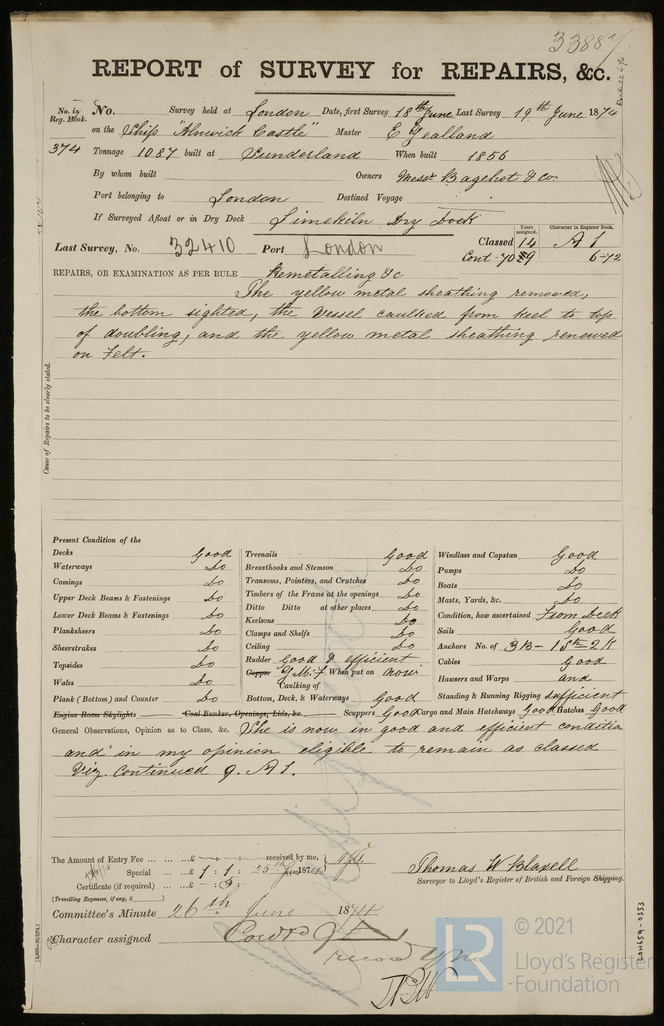 33887
REPORT of SURVEY for REPAIRS, &c.
No. in Reg. Book. No. Survey held at London Date, first Survey 18th June Last Survey 19th June 1874
on the Ship "Alnwick Castle" Master E Yealland
374 Tonnage 1087 built at Sunderland When built 1856
By whom built Owners Messrs Bagehot & Co.
Port belonging to London Destined Voyage
If Surveyed Afloat or in Dry Dock Limekiln Dry Dock
Years assigned. Character in Register Book.
Last Survey, No. 32410 Port London Classed 14 A 1
Cont - 70 9 6-72
REPAIRS, OR EXAMINATION AS PER RULE Remetalling &c
The yellow metal sheathing removed,
the bottom sighted, the Vessel caulked from keel to top
of doubling, and the yellow metal sheathing renewed
on Felt.
Cause of Repairs to be clearly stated.
Present Condition of the
Decks Good Treenails Good Windlass and Capstan Good
Waterways Do Breasthooks and Stemson Do Pumps Do
Comings Do Transons, Pointers, and Crutches Do Boats Do
Upper Deck Beams & Fastenings Do Timbers of the Frame at the openings Do Masts, Yards, &c. Do
Lower Deck Beams & Fastenings Do Ditto Ditto at other places Do Condition, how ascertained From Deck
Planksheers Do Keelsons Do Sails Good
Sheerstrakes Do Clamps and Shelfs Do Anchors No. of 3 B - 1 St = 2 K
Topsides Do Ceiling Do Cables Good
Wales Do Rudder Good & efficient Hawsers and Warps and
Copper Y. M. F When put on now
Plank (Bottom) and Counter Do Caulking of Bottom, Deck, & Waterways Good Standing & Running Rigging sufficient
Engine Room Skylights Coal Bunker, Openings, Lids, &c. Scuppers Good Cargo and Main Hatchways Good Hatches Good
General Observations, Opinion as to Class, &c. She is now in good and efficient condition
and in my opinion eligible to remain as classed
Viz. Continued 9. A 1.
The Amount of Entry Fee ... ... ... £ - : - : received by me,
Special ... ... £ 1 : 1 : 25th June 1874
Certificate (if required) ... £ - : 5 :
(Travelling Expenses, if any, £ )
Thomas W Blaxell
Surveyor to Lloyd's Register of British and Foreign Shipping.
Committee's Minute 26th June 1874
Character assigned Contd 9 A 1
LON659-0353
LR © 2021
Lloyd's Register
Foundation